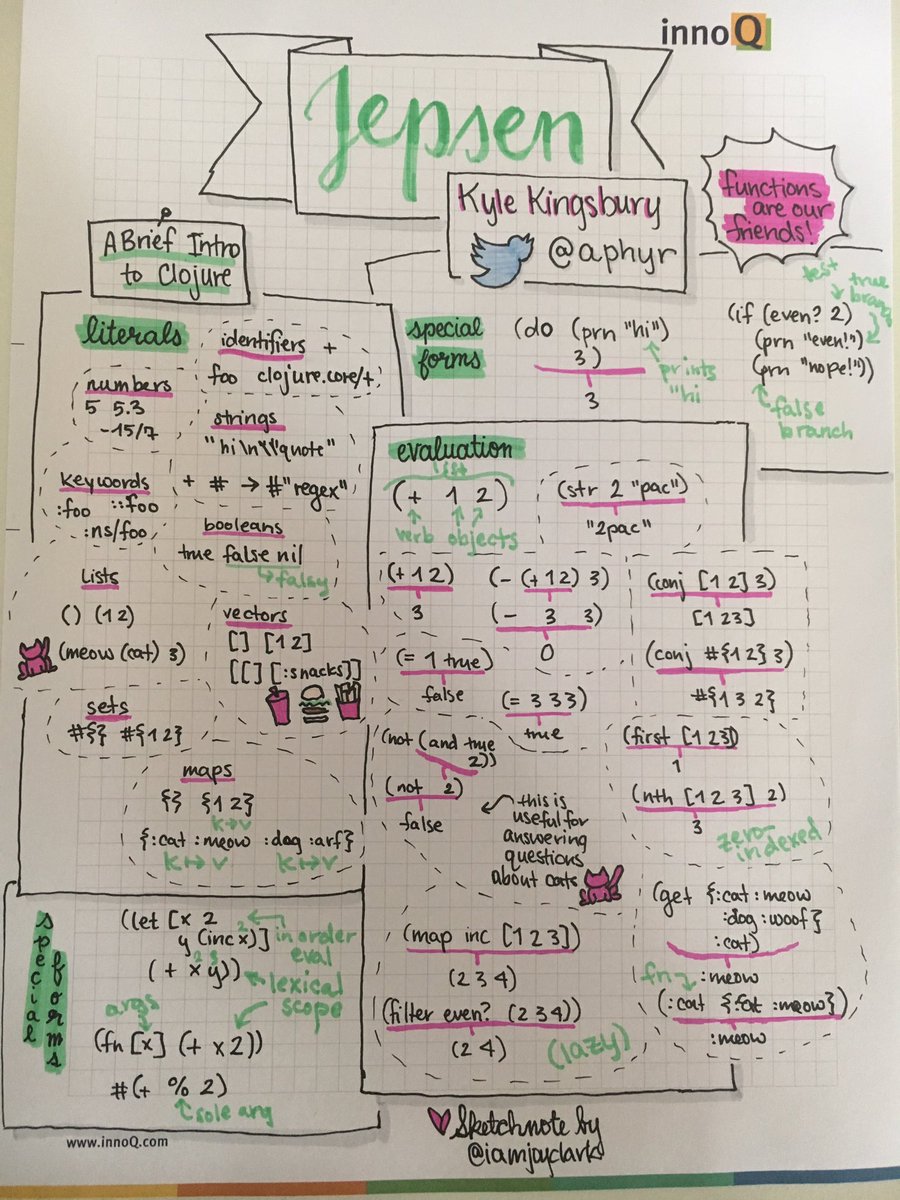 innoQ
Jepsen
Kyle Kingsbury
@aphyr
functions
are our
friends!
A Brief Intro
to Clojure
literals
identifiers +
foo clojure.core/+
numbers
5 5.3
-15/7
strings
"hi\n\"quote"
+ # → #"regex"
keywords
:foo ::foo
:ns/foo
booleans
true false nil
falsy
Lists
() (1 2)
(meow (cat) 3)
vectors
[] [1 2]
[[] [:snacks]]
sets
#{} #{1 2}
maps
{} {1 2}
k↦v
{:cat :meow :dog :arf}
k↦v k↦v
special
forms
(do (prn "hi")
3)
3
prints
"hi
test
true
branch
(if (even? 2)
(prn "even!")
(prn "nope!"))
false
branch
evaluation
list
(+ 1 2)
verb objects
(str 2 "pac")
"2pac"
(+ 1 2)
3
(- (+ 1 2) 3)
(- 3 3)
0
(= 1 true)
false
(= 3 3 3)
true
(not (and true
2))
(not 2)
false
this is
useful for
answering
questions
about cats
(conj [1 2] 3)
[1 2 3]
(conj #{1 2} 3)
#{1 3 2}
(first [1 2 3])
1
(nth [1 2 3] 2)
3
zero-
indexed
(map inc [1 2 3])
(2 3 4)
(filter even? (2 3 4))
(2 4)
(lazy)
(get {:cat :meow
:dog :woof}
:cat)
fn
:meow
(:cat {:cat :meow})
:meow
special
forms
(let [x 2
y (inc x)]
2
in order
eval
2 3
(+ x y))
lexical
scope
args
(fn [x] (+ x 2))
#(+ % 2)
sole arg
www.innoQ.com
Sketchnote by
@iamjoyclark